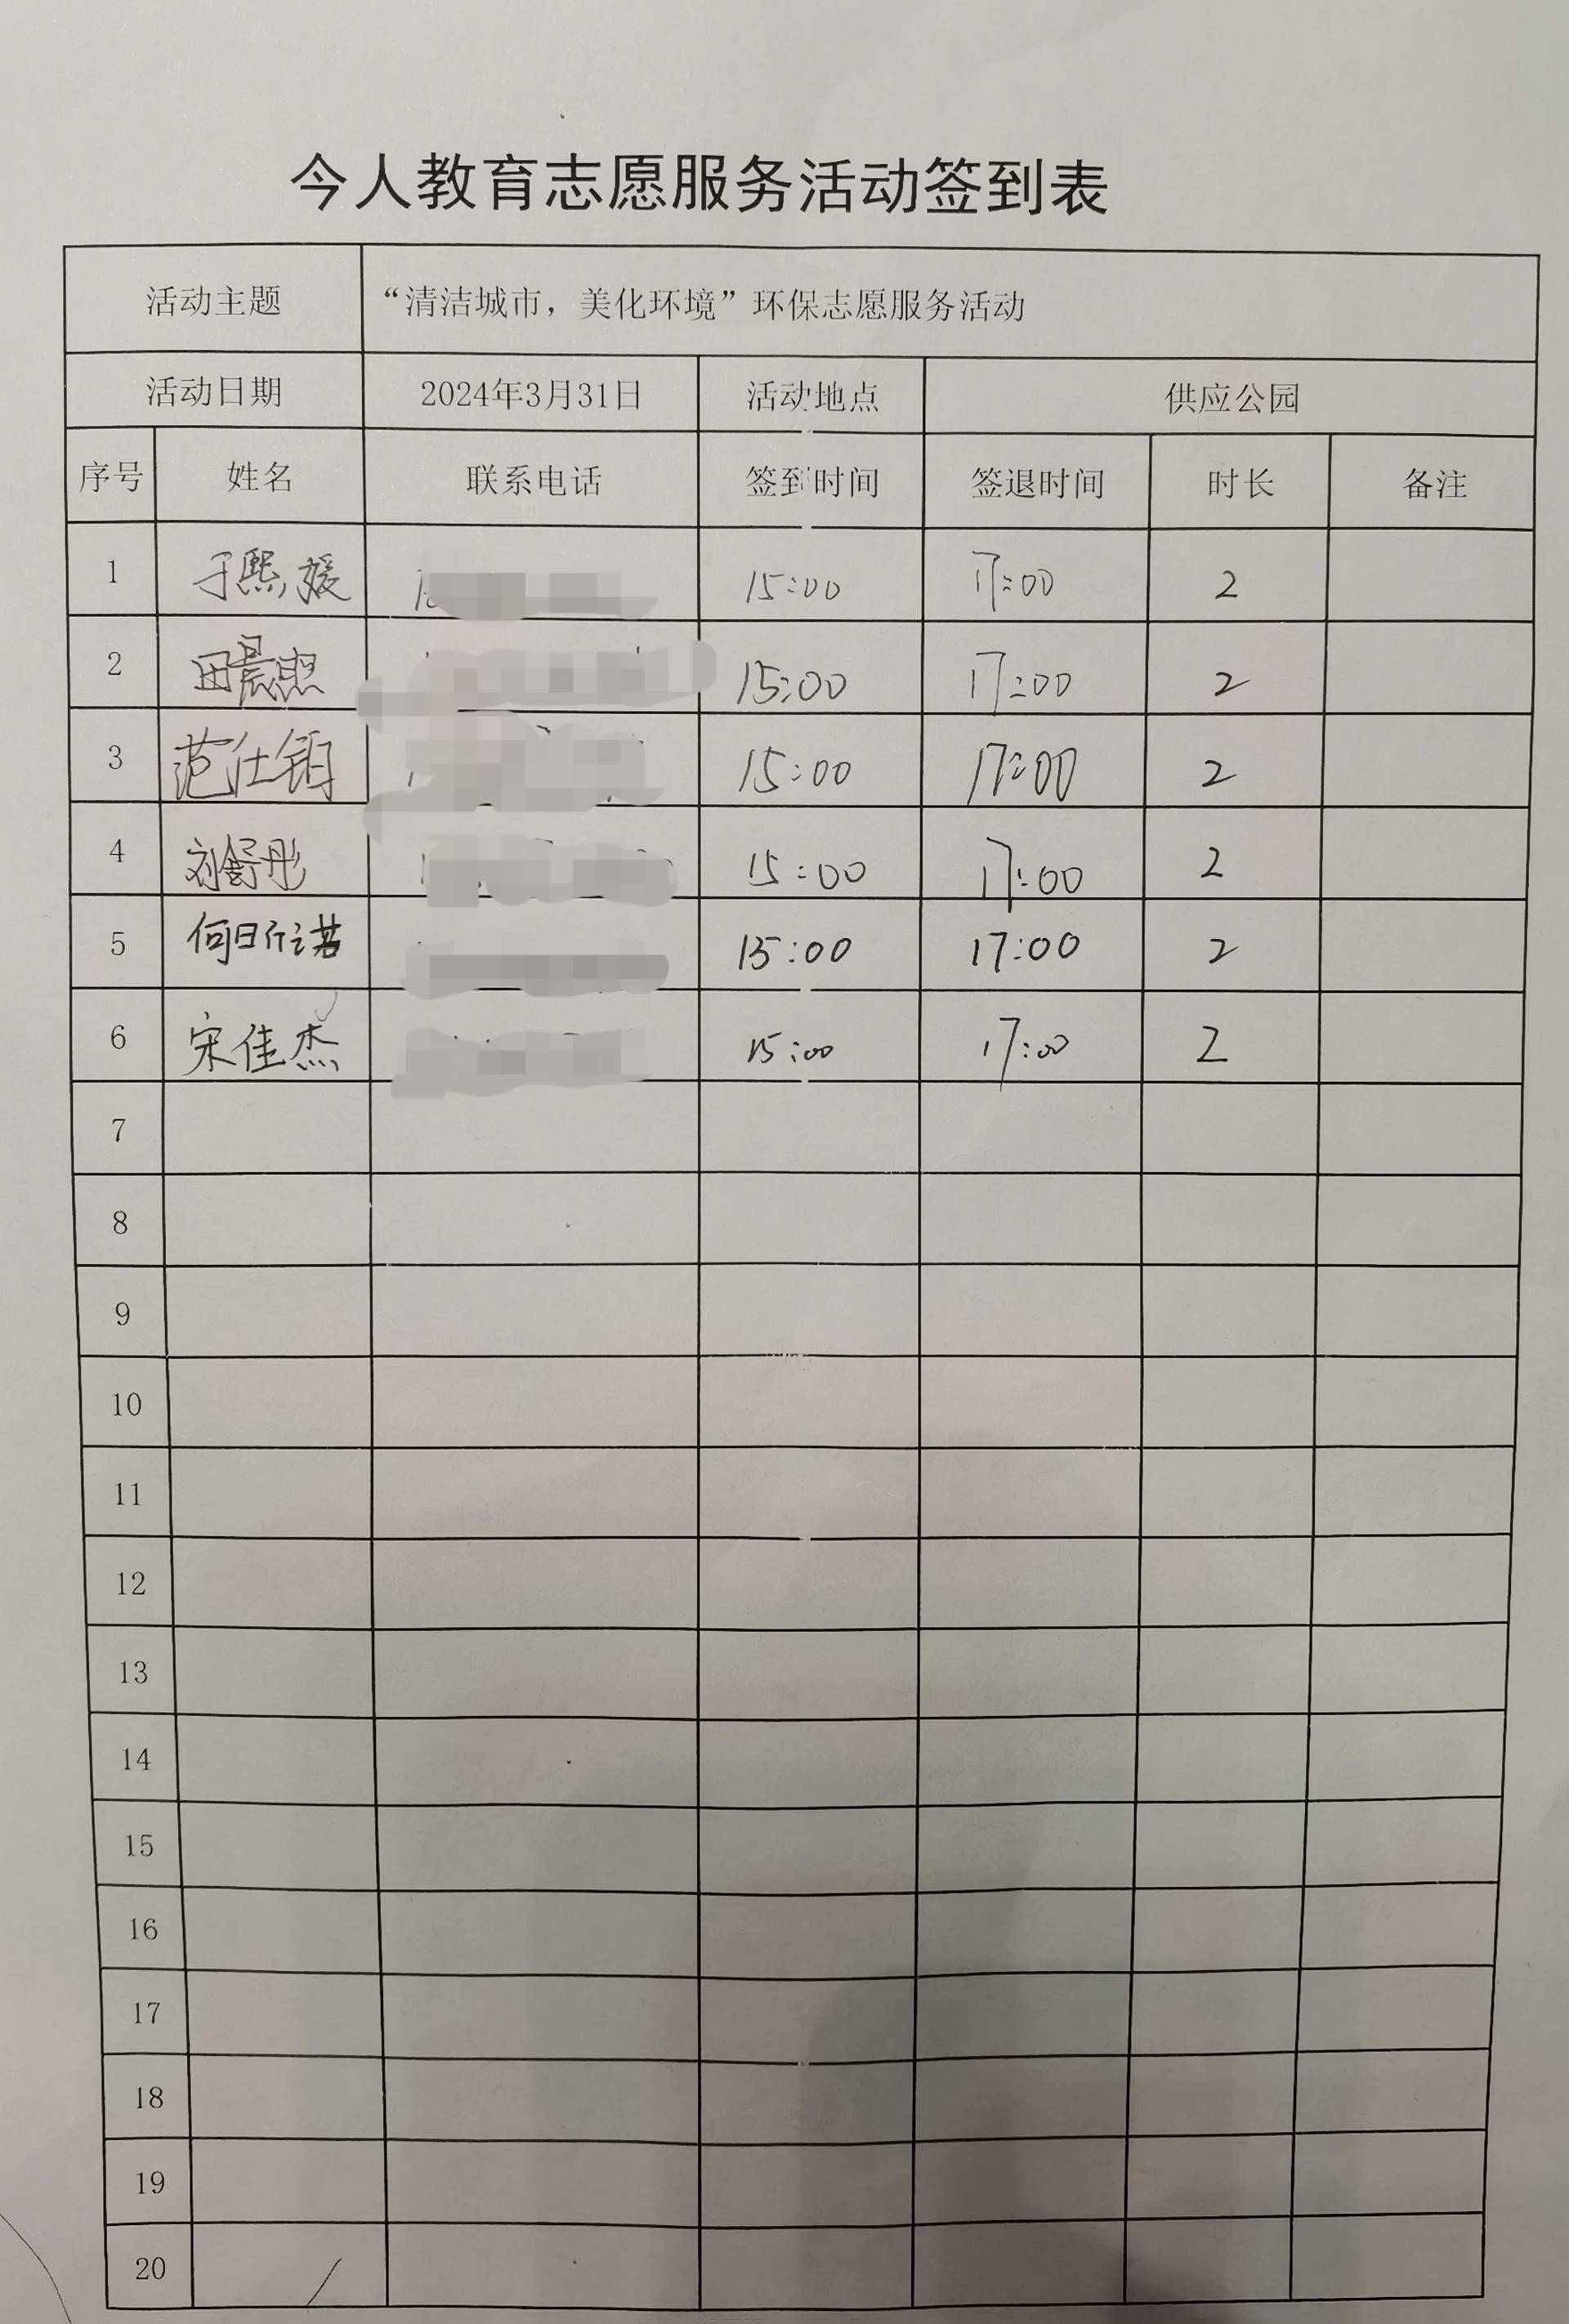 今人教育志愿服务活动签到表
活动主题 “清洁城市，美化环境”环保志愿服务活动
活动日期 2024年3月31日 活动地点 供应公园
序号 姓名 联系电话 签到时间 签退时间 时长 备注
1 于熙媛 15:00 17:00 2
2 田晨熙 15:00 17:00 2
3 范仕铂 15:00 17:00 2
4 刘舒彤 15:00 17:00 2
5 何昕诺 15:00 17:00 2
6 宋佳杰 15:00 17:00 2
7
8
9
10
11
12
13
14
15
16
17
18
19
20